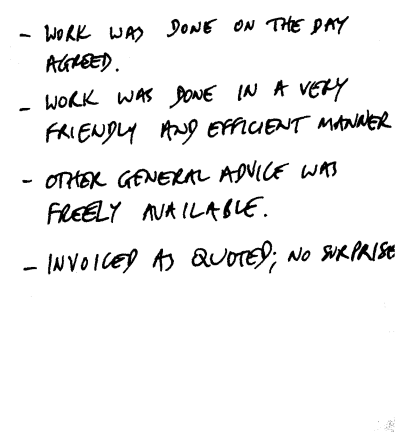 - WORK WAS DONE ON THE DAY
AGREED.
- WORK WAS DONE IN A VERY
FRIENDLY AND EFFICIENT MANNER
- OTHER GENERAL ADVICE WAS
FREELY AVAILABLE.
- INVOICED AS QUOTED; NO SURPRISE